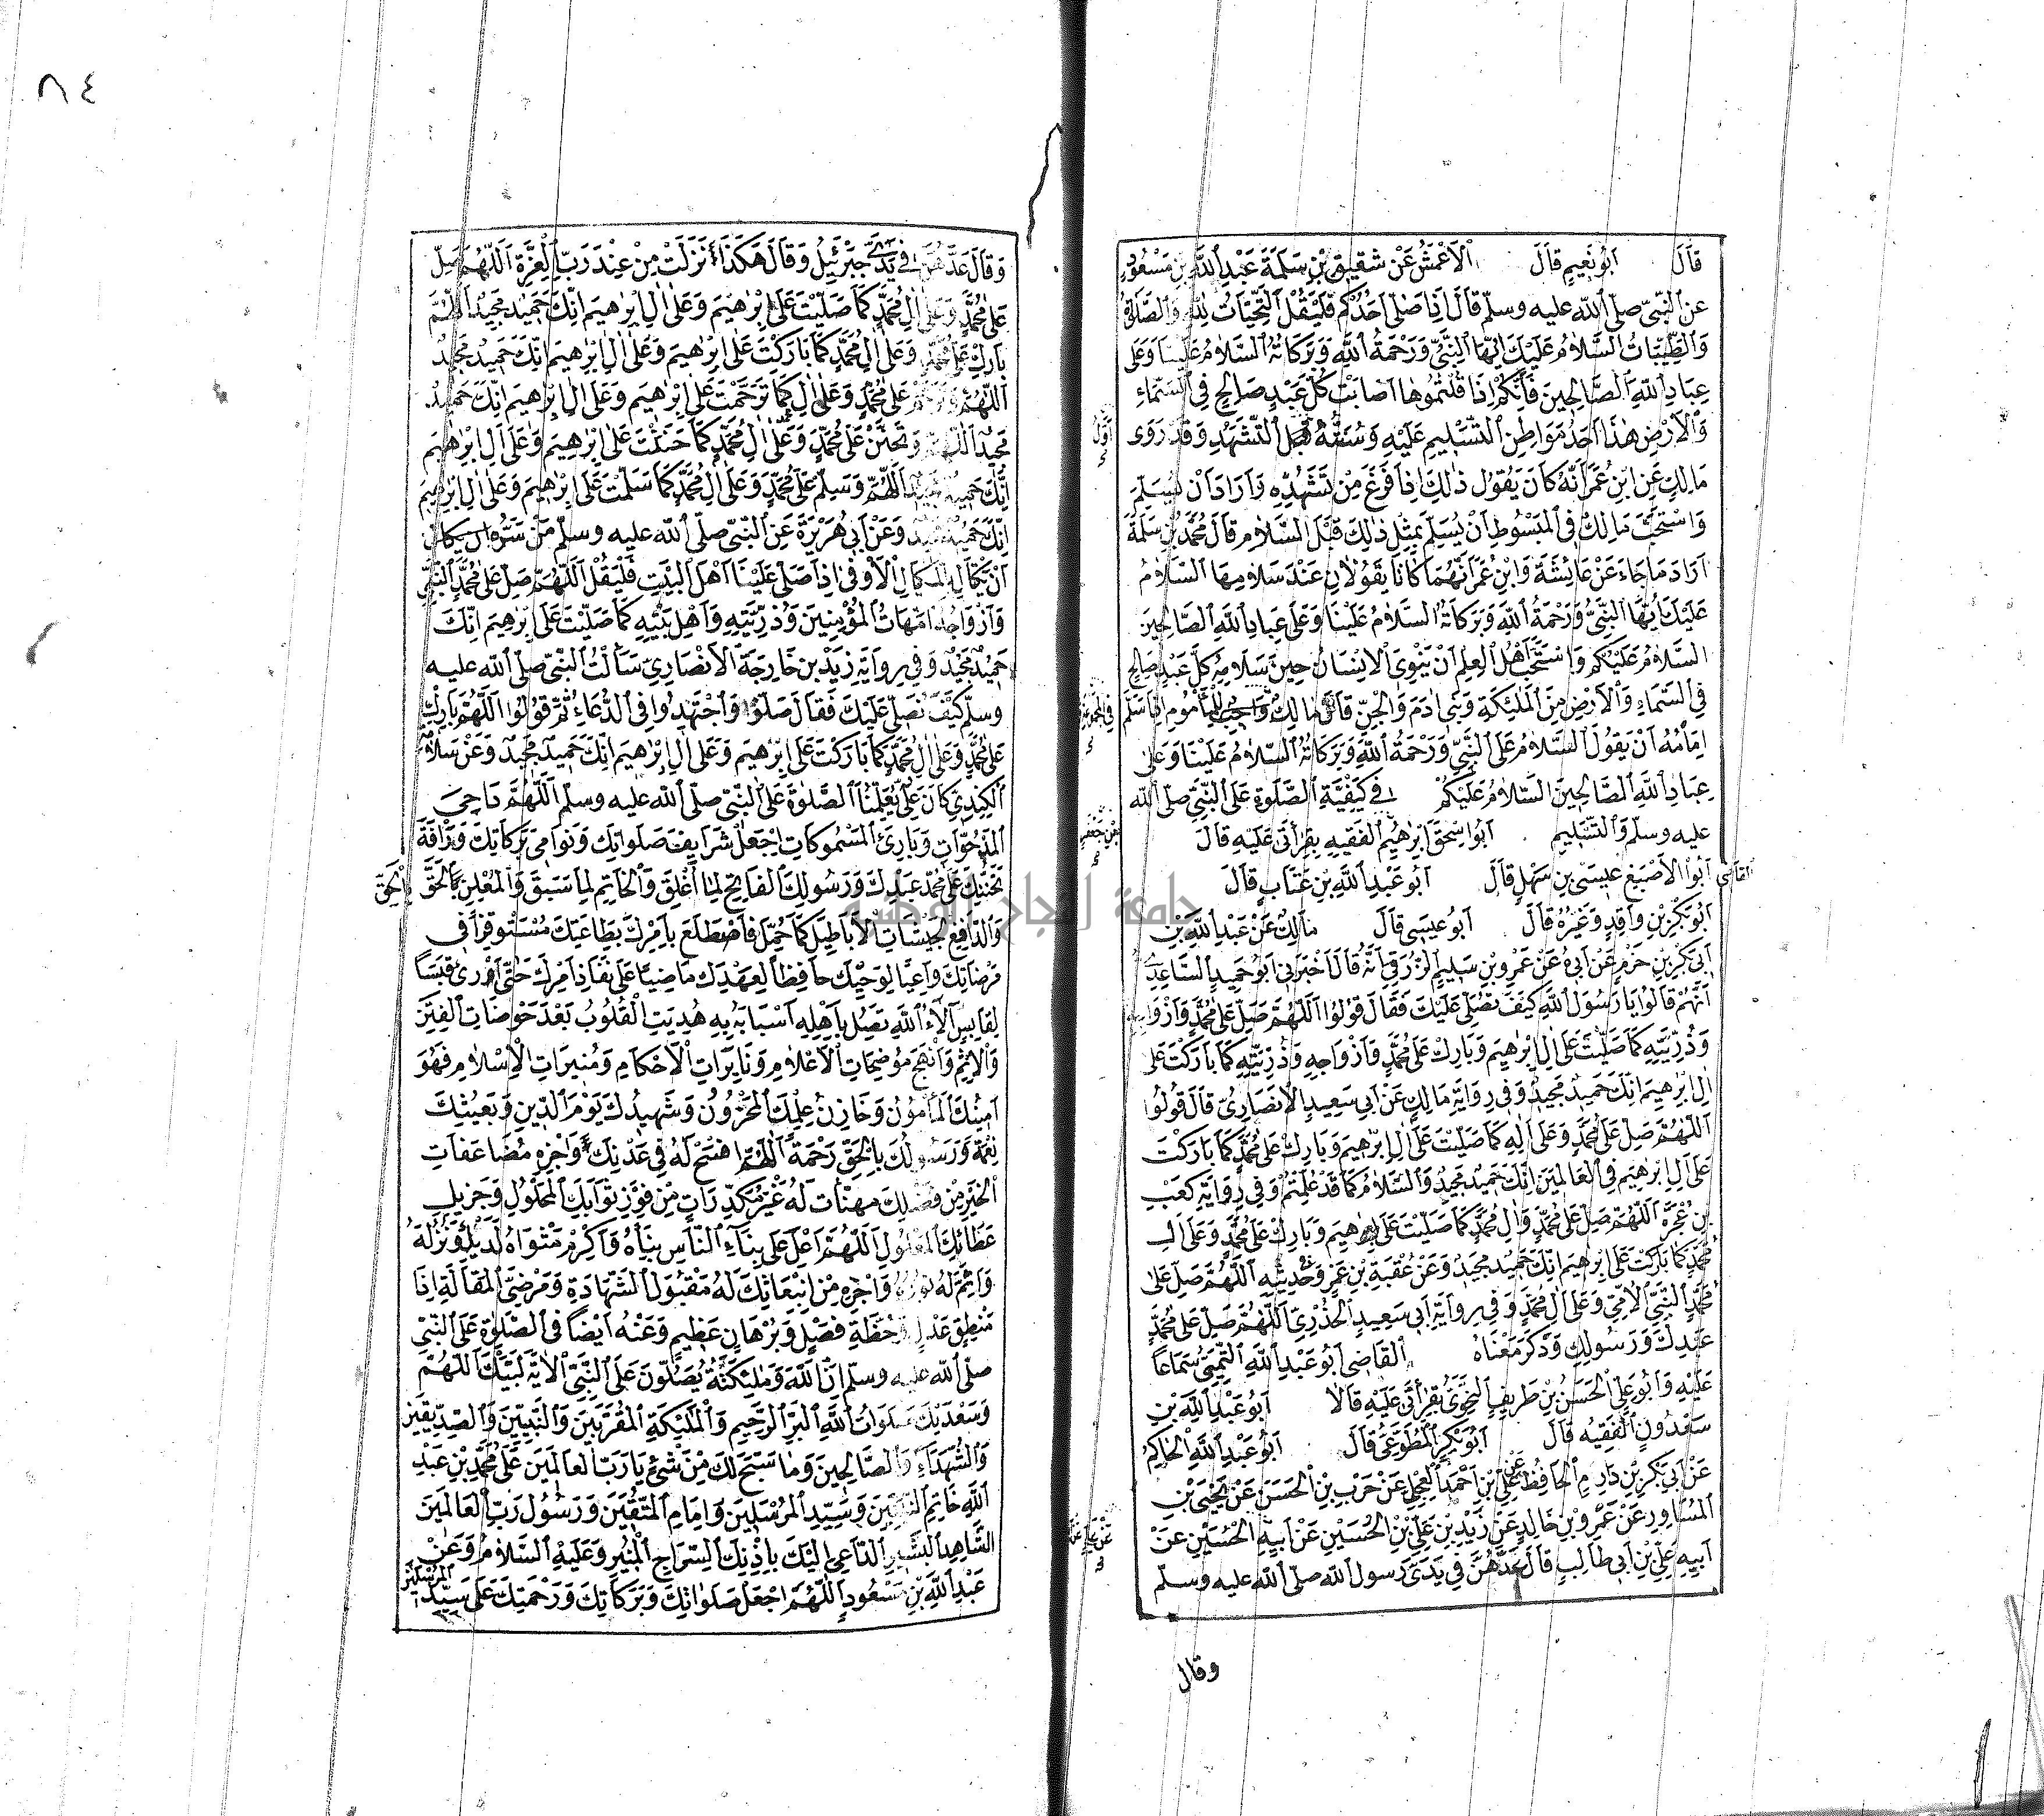 قَالَ اَبُو نُعَيْمٍ قَالَ اَلْاَعْمَشُ عَنْ شَقِيقِ بْنِ سَلَمَةَ عَبْدِ اللّٰهِ بْنِ مَسْعُودٍ
عَنِ النَّبِيِّ صلّى اللّه عليه وسلّم قَالَ اِذَا صَلّٰى اَحَدُكُمْ فَلْيَقُلْ اَلتَّحِيَّاتُ لِلّٰهِ وَالصَّلَوَاتُ
وَالطَّيِّبَاتُ السَّلَامُ عَلَيْكَ اَيُّهَا النَّبِيُّ وَرَحْمَةُ اللّٰهِ وَبَرَكَاتُهُ السَّلَامُ عَلَيْنَا وَعَلٰى
عِبَادِ اللّٰهِ الصَّالِحِينَ فَاِنَّكُمْ اِذَا قُلْتُمُوهَا اَصَابَتْ كُلَّ عَبْدٍ صَالِحٍ فِي السَّمَاءِ
وَالْاَرْضِ هٰذَا اَحَدُ مَوَاطِنِ التَّسْلِيمِ عَلَيْهِ وَسُنَّتُهُ قَبْلَ التَّشَهُّدِ وَقَدْ رَوٰى
اَوَّلُ
مَالِكٌ عَنِ ابْنِ عُمَرَ اَنَّهُ كَانَ يَقُولُ ذٰلِكَ اِذَا فَرَغَ مِنْ تَشَهُّدِهِ وَاَرَادَ اَنْ يُسَلِّمَ
وَاسْتَحَبَّ مَالِكٌ فِي الْمَبْسُوطِ اَنْ يُسَلِّمَ بِمِثْلِ ذٰلِكَ قَبْلَ السَّلَامِ قَالَ مُحَمَّدُ بْنُ مَسْلَمَةَ
اَرَادَ مَا جَاءَ عَنْ عَائِشَةَ وَابْنِ عُمَرَ اَنَّهُمَا كَانَا يَقُولَانِ عِنْدَ سَلَامِهِمَا اَلسَّلَامُ
عَلَيْكَ اَيُّهَا النَّبِيُّ وَرَحْمَةُ اللّٰهِ وَبَرَكَاتُهُ السَّلَامُ عَلَيْنَا وَعَلٰى عِبَادِ اللّٰهِ الصَّالِحِينَ
السَّلَامُ عَلَيْكُمْ وَاسْتَحَبَّ اَهْلُ الْعِلْمِ اَنْ يَنْوِيَ الْاِنْسَانُ حِينَ سَلَامِهِ كُلَّ عَبْدٍ صَالِحٍ
فِي السَّمَاءِ وَالْاَرْضِ مِنَ الْمَلٰئِكَةِ وَبَنِي اٰدَمَ وَالْجِنِّ قَالَ مَالِكٌ وَاُحِبُّ لِلْمَأْمُومِ اِذَا سَلَّمَ
فِي الْمَجْمُوعَةِ
اِمَامُهُ اَنْ يَقُولَ السَّلَامُ عَلَى النَّبِيِّ وَرَحْمَةُ اللّٰهِ وَبَرَكَاتُهُ السَّلَامُ عَلَيْنَا وَعَلٰى
عِبَادِ اللّٰهِ الصَّالِحِينَ السَّلَامُ عَلَيْكُمْ فِي كَيْفِيَّةِ الصَّلٰوةِ عَلَى النَّبِيِّ صلّى اللّه
عليه وسلّم وَالتَّسْلِيمِ اَبُو اِسْحٰقَ اِبْرٰهِيمُ الْفَقِيهُ بِقِرَاءَتِي عَلَيْهِ قَالَ
بْنُ جَعْفَرٍ
اَبُو الْاَصْبَغِ عِيسَى بْنُ سَهْلٍ قَالَ اَبُو عَبْدِ اللّٰهِ بْنُ عَتَّابٍ قَالَ
القاضى
اَبُو بَكْرِ بْنُ وَاقِدٍ وَغَيْرُهُ قَالَ اَبُو عِيسٰى قَالَ مَالِكٌ عَنْ عَبْدِ اللّٰهِ بْنِ
اَبِي بَكْرِ بْنِ حَزْمٍ عَنْ اَبِيهِ عَنْ عَمْرِو بْنِ سُلَيْمٍ الزُّرَقِيِّ اَنَّهُ قَالَ اَخْبَرَنِي اَبُو حُمَيْدٍ السَّاعِدِيُّ
اَنَّهُمْ قَالُوا يَا رَسُولَ اللّٰهِ كَيْفَ نُصَلِّي عَلَيْكَ فَقَالَ قُولُوا اَللّٰهُمَّ صَلِّ عَلٰى مُحَمَّدٍ وَاَزْوَاجِهِ
وَذُرِّيَّتِهِ كَمَا صَلَّيْتَ عَلٰى اٰلِ اِبْرٰهِيمَ وَبَارِكْ عَلٰى مُحَمَّدٍ وَاَزْوَاجِهِ وَذُرِّيَّتِهِ كَمَا بَارَكْتَ عَلٰى
اٰلِ اِبْرٰهِيمَ اِنَّكَ حَمِيدٌ مَجِيدٌ وَفِي رِوَايَةِ مَالِكٍ عَنْ اَبِي سَعِيدٍ الْاَنْصَارِيِّ قَالَ قُولُوا
اَللّٰهُمَّ صَلِّ عَلٰى مُحَمَّدٍ وَعَلٰى اٰلِهِ كَمَا صَلَّيْتَ عَلٰى اٰلِ اِبْرٰهِيمَ وَبَارِكْ عَلٰى مُحَمَّدٍ كَمَا بَارَكْتَ
عَلٰى اٰلِ اِبْرٰهِيمَ فِي الْعَالَمِينَ اِنَّكَ حَمِيدٌ مَجِيدٌ وَالسَّلَامُ كَمَا قَدْ عَلِمْتُمْ وَفِي رِوَايَةِ كَعْبِ
بْنِ عُجْرَةَ اَللّٰهُمَّ صَلِّ عَلٰى مُحَمَّدٍ وَاٰلِ مُحَمَّدٍ كَمَا صَلَّيْتَ عَلٰى اِبْرٰهِيمَ وَبَارِكْ عَلٰى مُحَمَّدٍ وَعَلٰى اٰلِ
مُحَمَّدٍ كَمَا بَارَكْتَ عَلٰى اِبْرٰهِيمَ اِنَّكَ حَمِيدٌ مَجِيدٌ وَعَنْ عُقْبَةَ بْنِ عَمْرٍو فِي حَدِيثِهِ اَللّٰهُمَّ صَلِّ عَلٰى
مُحَمَّدٍ النَّبِيِّ الْاُمِّيِّ وَعَلٰى اٰلِ مُحَمَّدٍ وَفِي رِوَايَةِ اَبِي سَعِيدٍ الْخُدْرِيِّ اَللّٰهُمَّ صَلِّ عَلٰى مُحَمَّدٍ
عَبْدِكَ وَرَسُولِكَ وَذَكَرَ مَعْنَاهُ اَلْقَاضِي اَبُو عَبْدِ اللّٰهِ التَّمِيمِيُّ سَمَاعًا
عَلَيْهِ وَاَبُو عَلِيٍّ الْحَسَنُ بْنُ طَرِيفٍ النَّحْوِيُّ بِقِرَاءَتِي عَلَيْهِ قَالَا اَبُو عَبْدِ اللّٰهِ بْنُ
سَعْدُونٍ الْفَقِيهُ قَالَ اَبُو بَكْرٍ الْمُطَّوِّعِيُّ قَالَ اَبُو عَبْدِ اللّٰهِ الْحَاكِمُ
عَنْ اَبِي بَكْرِ بْنِ دَارِمٍ الْحَافِظِ عَنْ عَلِيِّ بْنِ اَحْمَدَ الْعِجْلِيِّ عَنْ حَرْبِ بْنِ الْحَسَنِ عَنْ يَحْيَى بْنِ
الْمُسَاوِرِ عَنْ عَمْرِو بْنِ خَالِدٍ عَنْ زَيْدِ بْنِ عَلِيِّ بْنِ الْحُسَيْنِ عَنْ اَبِيهِ الْحُسَيْنِ عَنْ
اَبِيهِ عَلِيِّ بْنِ اَبِي طَالِبٍ قَالَ عَدَّهُنَّ فِي يَدِي رَسُولُ اللّٰهِ صلّى اللّه عليه وسلّم
وقال
٨٤
وَقَالَ عَدَّهُنَّ فِي يَدِي جِبْرَئِيلُ وَقَالَ هٰكَذَا نَزَلَتْ مِنْ عِنْدِ رَبِّ الْعِزَّةِ اَللّٰهُمَّ صَلِّ
عَلٰى مُحَمَّدٍ وَعَلٰى اٰلِ مُحَمَّدٍ كَمَا صَلَّيْتَ عَلٰى اِبْرٰهِيمَ وَعَلٰى اٰلِ اِبْرٰهِيمَ اِنَّكَ حَمِيدٌ مَجِيدٌ اَللّٰهُمَّ
بَارِكْ عَلٰى مُحَمَّدٍ وَعَلٰى اٰلِ مُحَمَّدٍ كَمَا بَارَكْتَ عَلٰى اِبْرٰهِيمَ وَعَلٰى اٰلِ اِبْرٰهِيمَ اِنَّكَ حَمِيدٌ مَجِيدٌ
اَللّٰهُمَّ وَتَرَحَّمْ عَلٰى مُحَمَّدٍ وَعَلٰى اٰلِ كَمَا تَرَحَّمْتَ عَلٰى اِبْرٰهِيمَ وَعَلٰى اٰلِ اِبْرٰهِيمَ اِنَّكَ حَمِيدٌ
مَجِيدٌ اَللّٰهُمَّ وَتَحَنَّنْ عَلٰى مُحَمَّدٍ وَعَلٰى اٰلِ مُحَمَّدٍ كَمَا تَحَنَّنْتَ عَلٰى اِبْرٰهِيمَ وَعَلٰى اٰلِ اِبْرٰهِيمَ
اِنَّكَ حَمِيدٌ مَجِيدٌ اَللّٰهُمَّ وَسَلِّمْ عَلٰى مُحَمَّدٍ وَعَلٰى اٰلِ مُحَمَّدٍ كَمَا سَلَّمْتَ عَلٰى اِبْرٰهِيمَ وَعَلٰى اٰلِ اِبْرٰهِيمَ
اِنَّكَ حَمِيدٌ مَجِيدٌ وَعَنْ اَبِي هُرَيْرَةَ عَنِ النَّبِيِّ صلّى اللّه عليه وسلّم مَنْ سَرَّهُ
اَنْ يَكْتَالَ بِالْمِكْيَالِ الْاَوْفٰى اِذَا صَلّٰى عَلَيْنَا اَهْلَ الْبَيْتِ فَلْيَقُلْ اَللّٰهُمَّ صَلِّ عَلٰى مُحَمَّدٍ النَّبِيِّ
وَاَزْوَاجِهِ اُمَّهَاتِ الْمُؤْمِنِينَ وَذُرِّيَّتِهِ وَاَهْلِ بَيْتِهِ كَمَا صَلَّيْتَ عَلٰى اِبْرٰهِيمَ اِنَّكَ
حَمِيدٌ مَجِيدٌ وَفِي رِوَايَةِ زَيْدِ بْنِ خَارِجَةَ الْاَنْصَارِيِّ سَأَلْتُ النَّبِيَّ صلّى اللّه عليه
وسلّم كَيْفَ نُصَلِّي عَلَيْكَ فَقَالَ صَلُّوا وَاجْتَهِدُوا فِي الدُّعَاءِ ثُمَّ قُولُوا اَللّٰهُمَّ بَارِكْ
عَلٰى مُحَمَّدٍ وَعَلٰى اٰلِ مُحَمَّدٍ كَمَا بَارَكْتَ عَلٰى اِبْرٰهِيمَ وَعَلٰى اٰلِ اِبْرٰهِيمَ اِنَّكَ حَمِيدٌ مَجِيدٌ وَعَنْ سَلَامَةَ
الْكِنْدِيِّ كَانَ عَلِيٌّ يُعَلِّمُنَا الصَّلٰوةَ عَلَى النَّبِيِّ صلّى اللّه عليه وسلّم اَللّٰهُمَّ دَاحِيَ
الْمَدْحُوَّاتِ وَبَارِئَ الْمَسْمُوكَاتِ اِجْعَلْ شَرَايِفَ صَلَوَاتِكَ وَنَوَامِيَ بَرَكَاتِكَ وَرَأْفَةَ
تَحَنُّنِكَ عَلٰى مُحَمَّدٍ عَبْدِكَ وَرَسُولِكَ الْفَاتِحِ لِمَا اُغْلِقَ وَالْخَاتِمِ لِمَا سَبَقَ وَالْمُعْلِنِ الْحَقَّ بِالْحَقِّ
وَالدَّافِعِ لِجَيْشَاتِ الْاَبَاطِيلِ كَمَا حُمِّلَ فَاضْطَلَعَ بِاَمْرِكَ بِطَاعَتِكَ مُسْتَوْفِزًا فِي
مَرْضَاتِكَ وَاعِيًا لِوَحْيِكَ حَافِظًا لِعَهْدِكَ مَاضِيًا عَلٰى نَفَاذِ اَمْرِكَ حَتّٰى اَوْرٰى قَبَسًا
لِقَابِسٍ اٰلَاءُ اللّٰهِ تَصِلُ بِاَهْلِهِ اَسْبَابَهُ بِهِ هُدِيَتِ الْقُلُوبُ بَعْدَ خَوْضَاتِ الْفِتَنِ
وَالْاِثْمِ وَاَنْهَجَ مُوضِحَاتِ الْاَعْلَامِ وَنَايِرَاتِ الْاَحْكَامِ وَمُنِيرَاتِ الْاِسْلَامِ فَهُوَ
اَمِينُكَ الْمَأْمُونُ وَخَازِنُ عِلْمِكَ الْمَخْزُونِ وَشَهِيدُكَ يَوْمَ الدِّينِ وَبَعِيثُكَ
نِعْمَةً وَرَسُولُكَ بِالْحَقِّ رَحْمَةً اَللّٰهُمَّ افْسَحْ لَهُ فِي عَدْنِكَ وَاجْزِهِ مُضَاعَفَاتِ
الْخَيْرِ مِنْ فَضْلِكَ مُهَنَّآتٍ لَهُ غَيْرَ مُكَدَّرَاتٍ مِنْ فَوْزِ ثَوَابِكَ الْمَحْلُولِ وَجَزِيلِ
عَطَائِكَ الْمَعْلُولِ اَللّٰهُمَّ اَعْلِ عَلٰى بِنَاءِ النَّاسِ بِنَاءَهُ وَاَكْرِمْ مَثْوَاهُ لَدَيْكَ وَنُزُلَهُ
وَاَتْمِمْ لَهُ نُورَهُ وَاجْزِهِ مِنِ ابْتِعَاثِكَ لَهُ مَقْبُولَ الشَّهَادَةِ وَمَرْضِيَّ الْمَقَالَةِ ذَا
مَنْطِقٍ عَدْلٍ وَخُطَّةٍ فَصْلٍ وَبُرْهَانٍ عَظِيمٍ وَعَنْهُ اَيْضًا فِي الصَّلٰوةِ عَلَى النَّبِيِّ
صلّى اللّه عليه وسلّم اِنَّ اللّٰهَ وَمَلٰئِكَتَهُ يُصَلُّونَ عَلَى النَّبِيِّ الْاٰيَةَ لَبَّيْكَ اَللّٰهُمَّ
وَسَعْدَيْكَ صَلَوَاتُ اللّٰهِ الْبَرِّ الرَّحِيمِ وَالْمَلٰئِكَةِ الْمُقَرَّبِينَ وَالنَّبِيِّينَ وَالصِّدِّيقِينَ
وَالشُّهَدَاءِ وَالصَّالِحِينَ وَمَا سَبَّحَ لَكَ مِنْ شَيْءٍ يَا رَبَّ الْعَالَمِينَ عَلٰى مُحَمَّدِ بْنِ عَبْدِ
اللّٰهِ خَاتِمِ النَّبِيِّينَ وَسَيِّدِ الْمُرْسَلِينَ وَاِمَامِ الْمُتَّقِينَ وَرَسُولِ رَبِّ الْعَالَمِينَ
الشَّاهِدِ الْبَشِيرِ الدَّاعِي اِلَيْكَ بِاِذْنِكَ السِّرَاجِ الْمُنِيرِ وَعَلَيْهِ السَّلَامُ وَعَنْ
عَبْدِ اللّٰهِ بْنِ مَسْعُودٍ اَللّٰهُمَّ اجْعَلْ صَلَوَاتِكَ وَبَرَكَاتِكَ وَرَحْمَتَكَ عَلٰى سَيِّدِ الْمُرْسَلِينَ
جامعة النجاح الوطنية